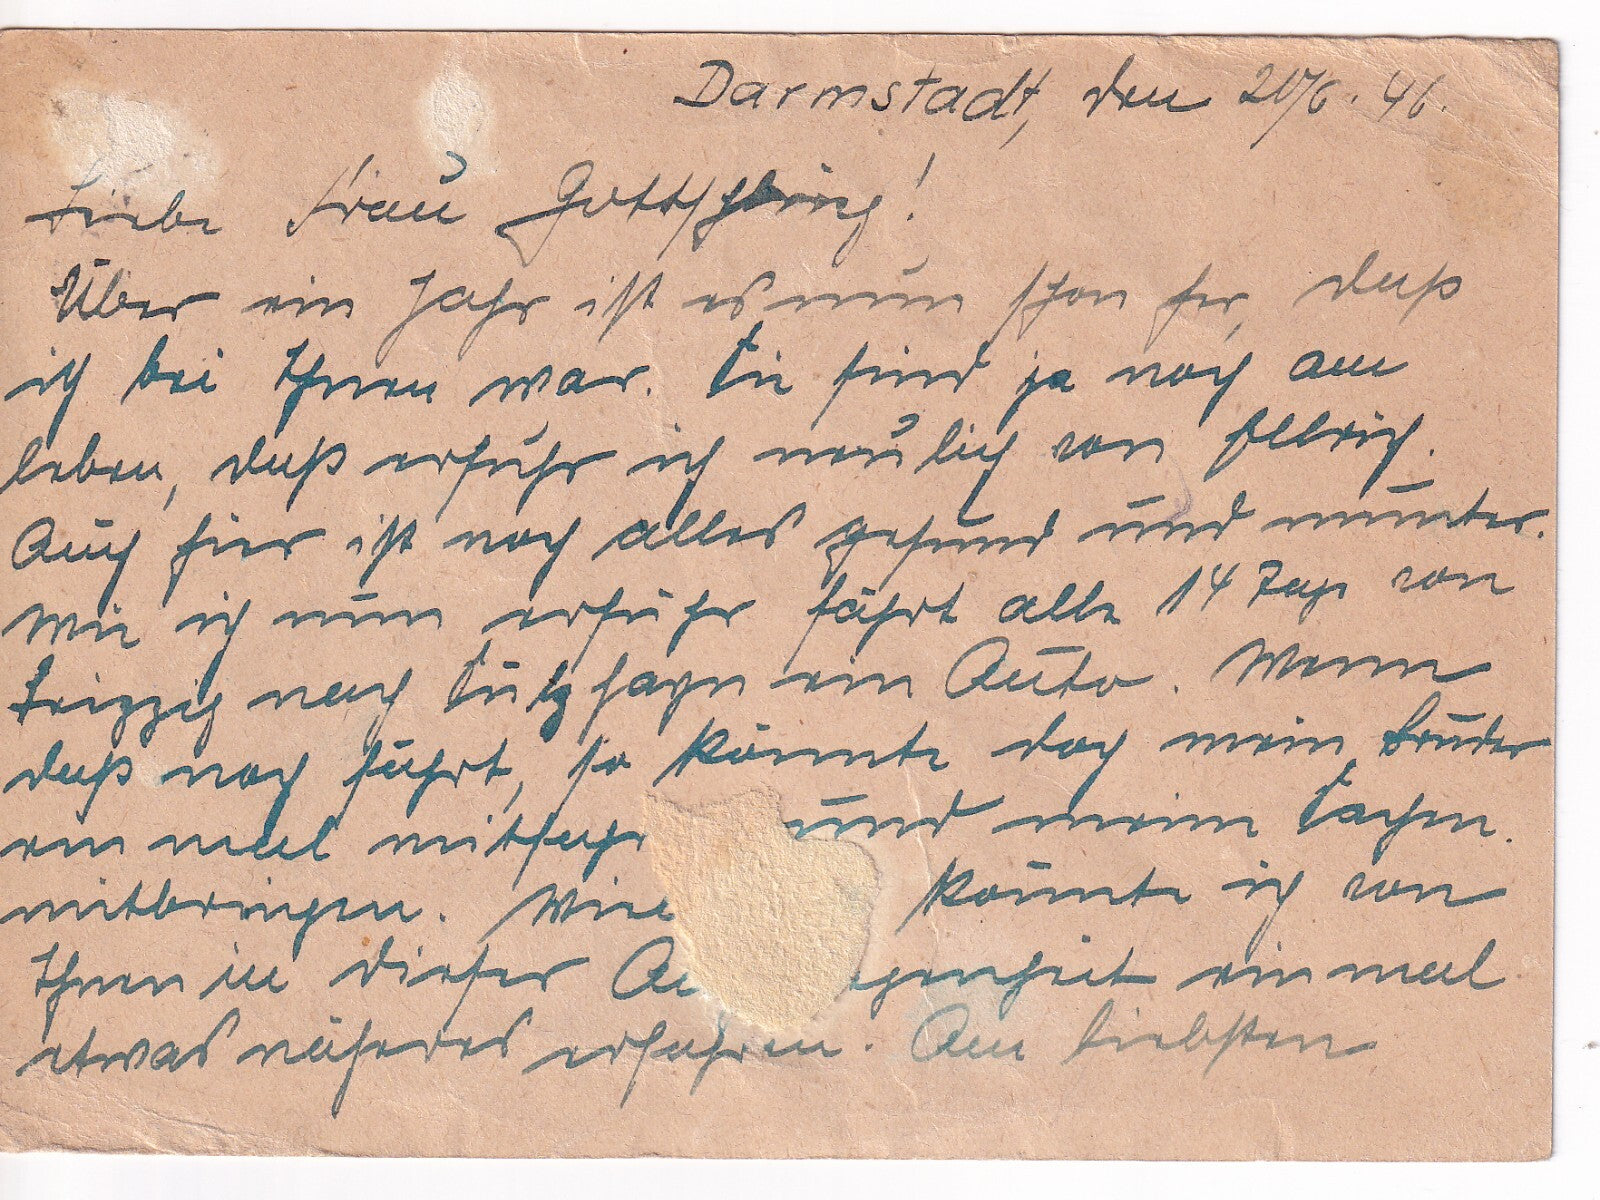 Darmstadt, den 20/6. 46.
Liebe Frau !
Über ein Jahr ist es nun schon her, daß
ich bei Ihnen war. Sie sind ja noch am
leben, daß erfuhr ich neulich von
Auch hier ist noch alles gesund und munter.
Wie ich nun erfuhr fährt alle 14 Tage von
Leipzig nach ein Auto. Wenn
daß noch fährt, so könnte doch mein Bruder
ein mal mitfahr und meine Sachen
mitbringen. könnte ich von
Ihnen in dieser genheit ein mal
etwas näheres erfahren. Am liebsten